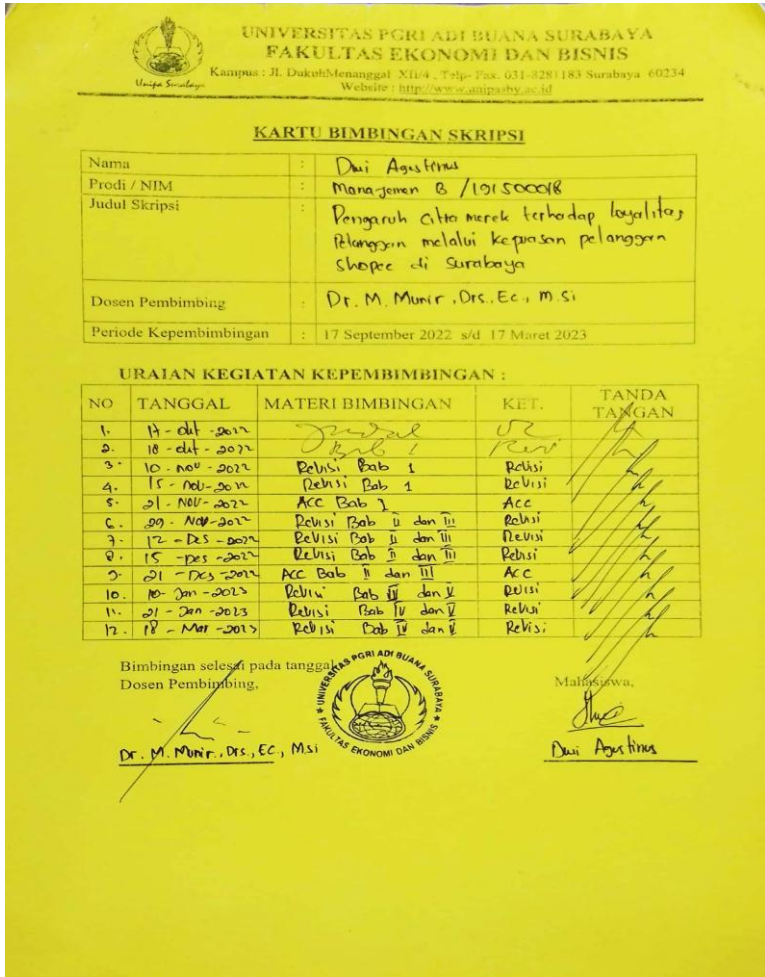 UNIVERSITAS PGRI ADI BUANA SURABAYA
FAKULTAS EKONOMI DAN BISNIS
Kampus : Jl. DukuhMenanggal XII/4 , Telp- Fax. 031-8281183 Surabaya 60234
Website : http://www.unipasby.ac.id
Unipa Surabaya
KARTU BIMBINGAN SKRIPSI
Nama : Dwi Agustinus
Prodi / NIM : Manajemen B / 191500018
Judul Skripsi : Pengaruh citra merek terhadap loyalitas
Pelanggan melalui kepuasan pelanggan
Shopee di Surabaya
Dosen Pembimbing : Dr. M. Munir, Drs., Ec., M.Si
Periode Kepembimbingan : 17 September 2022 s/d 17 Maret 2023
URAIAN KEGIATAN KEPEMBIMBINGAN :
NO TANGGAL MATERI BIMBINGAN KET. TANDA TANGAN
1. 17 - okt - 2022 Judul
2. 18 - okt - 2022 Bab 1 Revisi
3. 10 - nov - 2022 Revisi Bab 1 Revisi
4. 15 - nov - 2022 Revisi Bab 1 Revisi
5. 21 - NOV - 2022 ACC Bab 1 Acc
6. 29 - Nov - 2022 Revisi Bab II dan III Revisi
7. 12 - Des - 2022 Revisi Bab II dan III Revisi
8. 15 - Des - 2022 Revisi Bab II dan III Revisi
9. 21 - Des - 2022 Acc Bab II dan III Acc
10. 10 - Jan - 2023 Revisi Bab IV dan V Revisi
11. 21 - Jan - 2023 Revisi Bab IV dan V Revisi
12. 18 - Mar - 2023 Revisi Bab IV dan V Revisi
Bimbingan selesai pada tanggal
Dosen Pembimbing, Mahasiswa,
UNIVERSITAS PGRI ADI BUANA SURABAYA
FAKULTAS EKONOMI DAN BISNIS
Dr. M. Munir., Drs., EC., Msi Dwi Agustinus